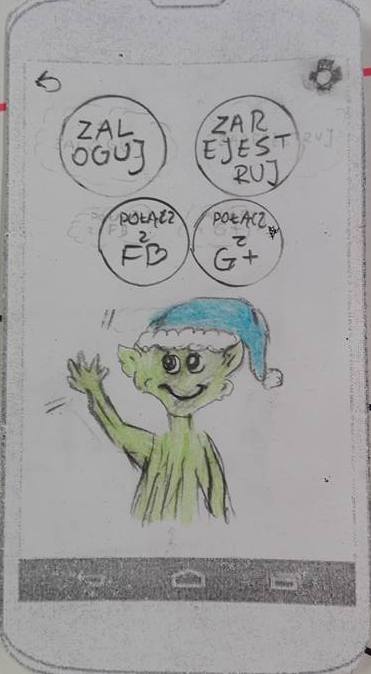 ZAL
OGUJ
ZAR
EJEST
RUJ
POŁĄCZ
Z
FB
POŁĄCZ
Z
G+